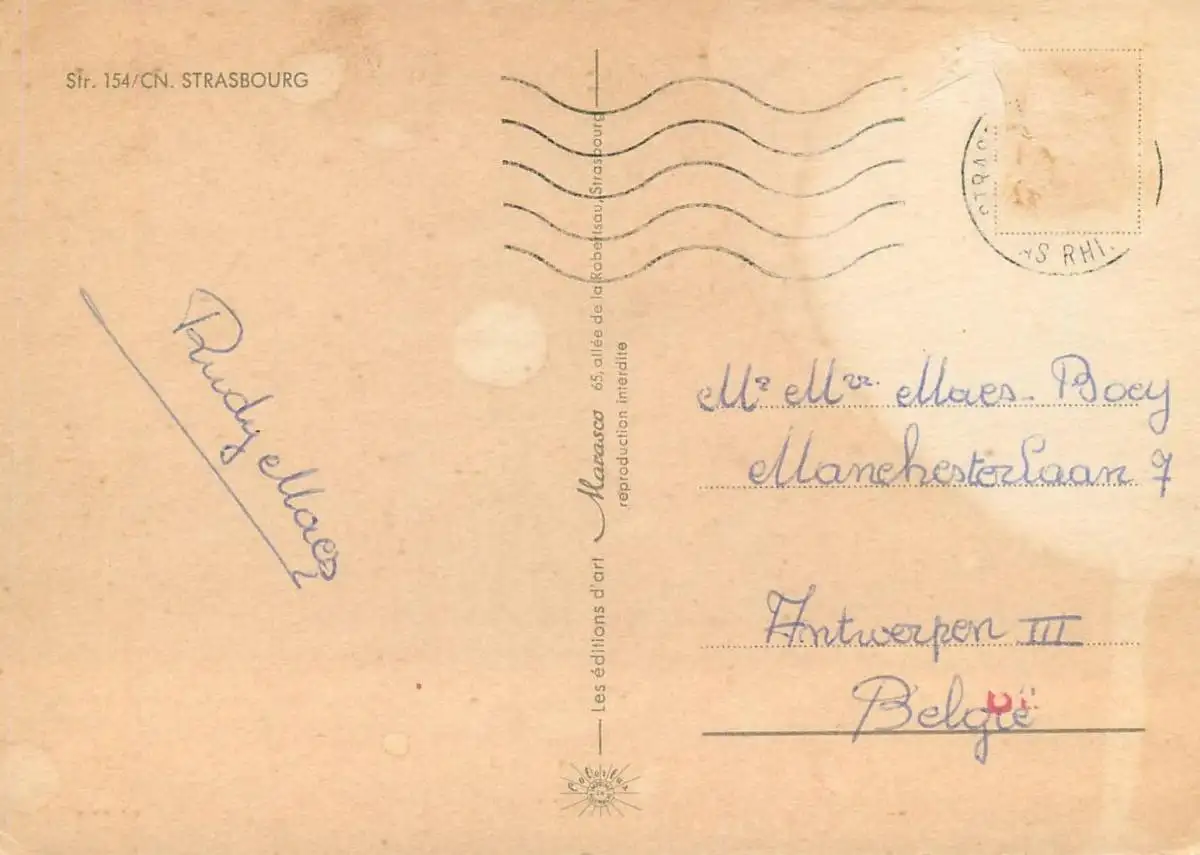 Str. 154/CN. STRASBOURG
Rudy Maes
Les éditions d'art Marasco 65, allée de la Robertsau, Strasbourg
reproduction interdite
AS RHI
Mr Mvr. Maes-Boey
Manchesterlaan 7
Antwerpen III
België